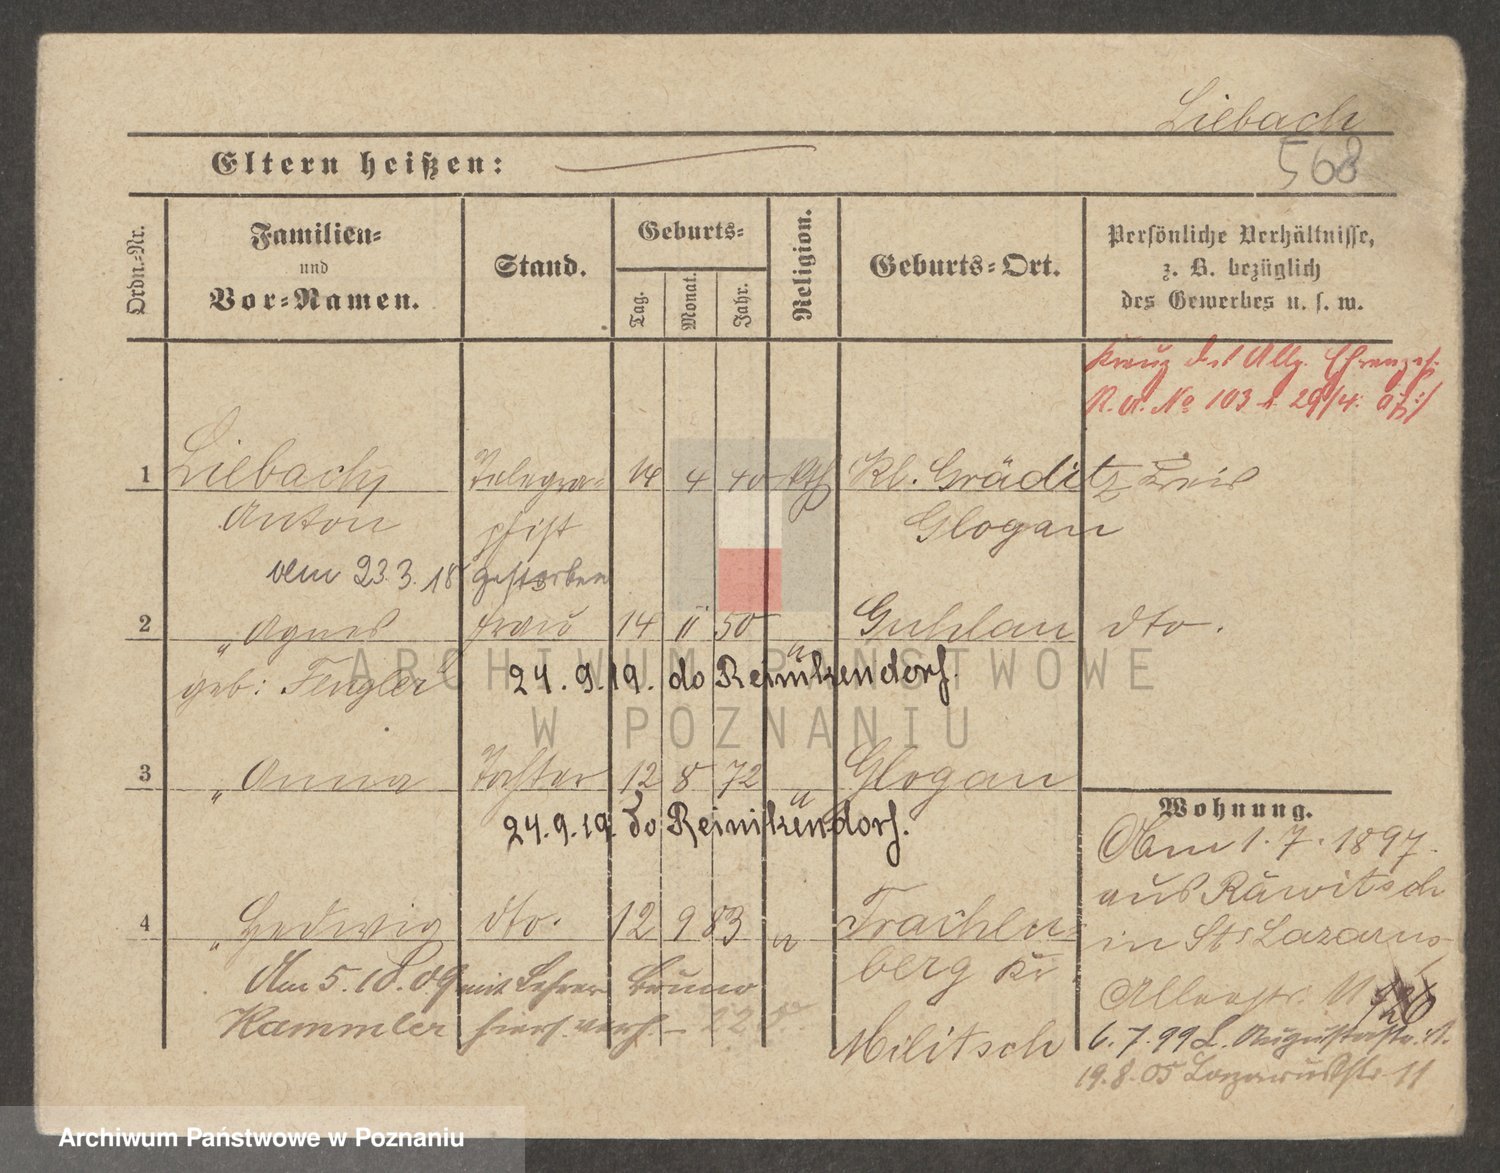 Liebach
568
Eltern heißen:
Ordn.-Nr.
Familien-
und
Vor-Namen.
Stand.
Geburts-
Tag.
Monat.
Jahr.
Religion.
Geburts-Ort.
Persönliche Verhältnisse,
z. B. bezüglich
des Gewerbes u. s. w.
Kreuz des Allg. Ehrenz.
No 103 29/4.
1 Liebach, Telegra- 4 40 Kth Kl. Gräditz Kreis
Anton phist Glogau
23.3.18 gestorben
2 " Agnes Frau 14 11 50 " Guhlau dto.
geb: Fengler 24.9.19. do Reinikendorf.
3 " Anna Tochter 12 8 72 " Glogau
24.9.19 do Reinikendorf.
Wohnung.
Am 1.7.1897.
aus Rawitsch
4 " Hedwig dto. 12 9 83 " Trachen-
in St. Lazarus
berg Kr
Am 5.10.09 mit Lehrer Bruno
Kammler hier verh.
Militsch
6.7.99 Augustastr.
19.8.05 Lazarusstr. 11
ARCHIWUM PAŃSTWOWE
W POZNANIU
Archiwum Państwowe w Poznaniu